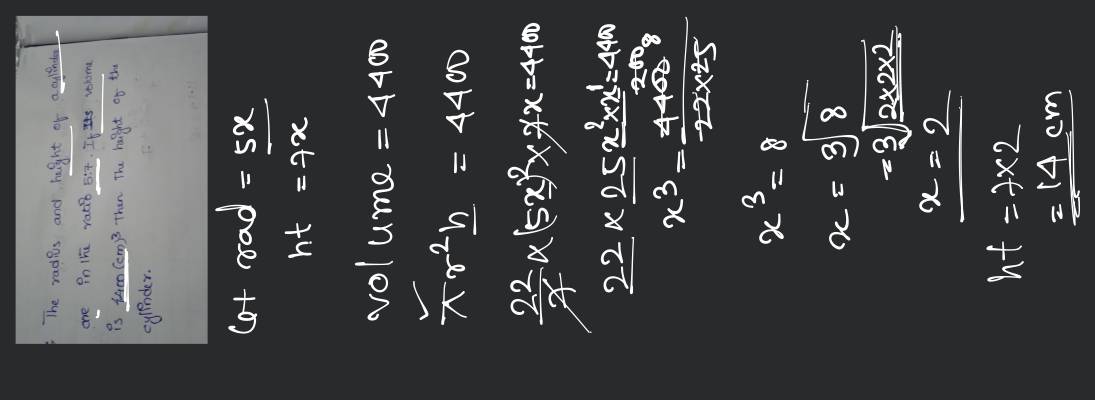 The radius and height of a cylinder
are in the ratio 5:7. If Its volume
is 4400 (cm)³ Then The height of the
cylinder.
Let rad = 5x
ht = 7x
volume = 4400
✓πr²h = 4400
22/7 × (5x)² × 7x = 4400
22 × 25x² × x¹ = 4400
x³ = 4400/22×25
200 8
x³ = 8
x = 3√8
= 3√2×2×2
x = 2
ht = 7×2
= 14 cm